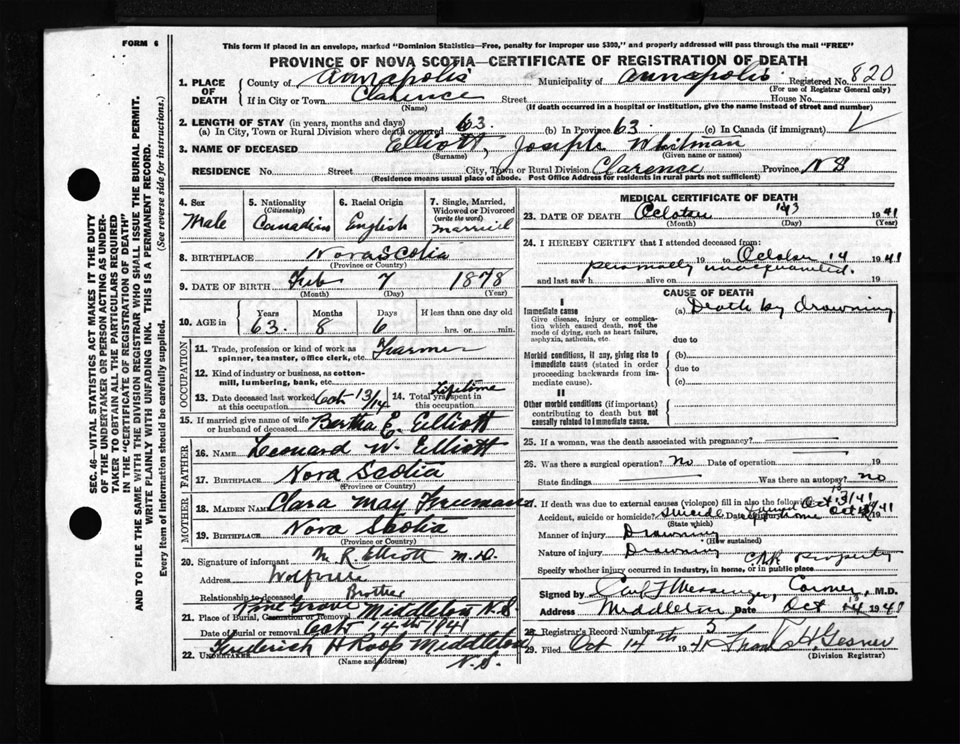 FORM 6
This form if placed in an envelope, marked "Dominion Statistics—Free, penalty for improper use $300," and properly addressed will pass through the mail "FREE"
PROVINCE OF NOVA SCOTIA—CERTIFICATE OF REGISTRATION OF DEATH
1. PLACE OF DEATH County of Annapolis Municipality of Annapolis Registered No. 820
(For use of Registrar General only)
If in City or Town Clarence Street House No.
(Name) (If death occurred in a hospital or institution, give the name instead of street and number)
2. LENGTH OF STAY (in years, months and days)
(a) In City, Town or Rural Division where death occurred 63. (b) In Province 63. (c) In Canada (if immigrant)
3. NAME OF DECEASED Elliott, Joseph Whitman
(Surname) (Given name or names)
RESIDENCE No. Street City, Town or Rural Division Clarence Province N S
(Residence means usual place of abode. Post Office Address for residents in rural parts not sufficient)
SEC. 46—VITAL STATISTICS ACT MAKES IT THE DUTY
OF THE UNDERTAKER OR PERSON ACTING AS UNDER-
TAKER TO OBTAIN ALL THE PARTICULARS REQUIRED
IN THE "CERTIFICATE OF REGISTRATION OF DEATH"
AND TO FILE THE SAME WITH THE DIVISION REGISTRAR WHO SHALL ISSUE THE BURIAL PERMIT.
WRITE PLAINLY WITH UNFADING INK. THIS IS A PERMANENT RECORD.
Every item of Information should be carefully supplied. (See reverse side for instructions.)
4. Sex
Male
5. Nationality
(Citizenship)
Canadian
6. Racial Origin
English
7. Single, Married,
Widowed or Divorced
(write the word)
Married
8. BIRTHPLACE Nova Scotia
(Province or Country)
9. DATE OF BIRTH Feb 7 1878
(Month) (Day) (Year)
10. AGE in Years Months Days If less than one day old
63. 8 6 hrs. or min.
OCCUPATION
11. Trade, profession or kind of work as
spinner, teamster, office clerk, etc. Farmer
12. Kind of industry or business, as cotton-
mill, lumbering, bank, etc.
13. Date deceased last worked
at this occupation Oct 13/14
14. Total yrs. spent in
this occupation Lifetime
15. If married give name of wife
or husband of deceased Bertha E. Elliott
FATHER
16. NAME Leonard W. Elliott
17. BIRTHPLACE Nova Scotia
(Province or Country)
MOTHER
18. MAIDEN NAME Clara May Freeman
19. BIRTHPLACE Nova Scotia
(Province or Country)
20. Signature of informant M. R. Elliott M.D.
Address Wolfville
Relationship to deceased Brother
21. Place of Burial, Cremation or Removal Pine Grove Middleton N.S.
Date of Burial or removal Oct 14th 1941
22. UNDERTAKER Frederich H Roop Middleton
(Name and address) N.S.
MEDICAL CERTIFICATE OF DEATH
23. DATE OF DEATH October 13 1941
(Month) (Day) (Year)
24. I HEREBY CERTIFY that I attended deceased from:
19 to October 14 1941
personally unacquainted.
and last saw h alive on 19
CAUSE OF DEATH
I
Immediate cause
Give disease, injury or compli-
cation which caused death, not the
mode of dying, such as heart failure,
asphyxia, asthenia, etc.
(a) Death by drowning
due to
Morbid conditions, if any, giving rise to
immediate cause (stated in order
proceeding backwards from im-
mediate cause).
(b)
due to
(c)
II
Other morbid conditions (if important)
contributing to death but not
causally related to immediate cause.
25. If a woman, was the death associated with pregnancy?
26. Was there a surgical operation? No Date of operation 19
State findings Was there an autopsy? no
27. If death was due to external causes (violence) fill in also the following: Oct 13/41
Accident, suicide or homicide? Suicide Date of injury Oct 13/41
(State which)
Manner of injury Drowning
(How sustained)
Nature of injury Drowning
Specify whether injury occurred in industry, in home, or in public place Property
Signed by Carl Messenger, Coroner, M.D.
Address Middleton Date Oct 14 1941
28. Registrar's Record Number 5
29. Filed Oct 14th 1941 H. Gesner
(Division Registrar)